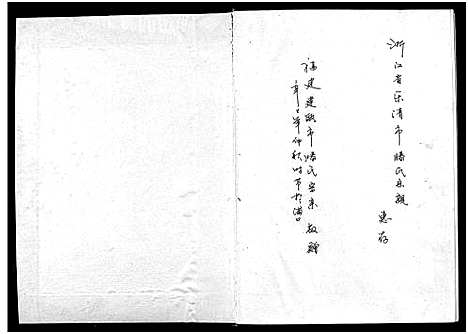 浙江省乐清市滕氏宗亲
惠存
福建建瓯市滕氏宗亲 敬赠
辛巳年仲秋时节于